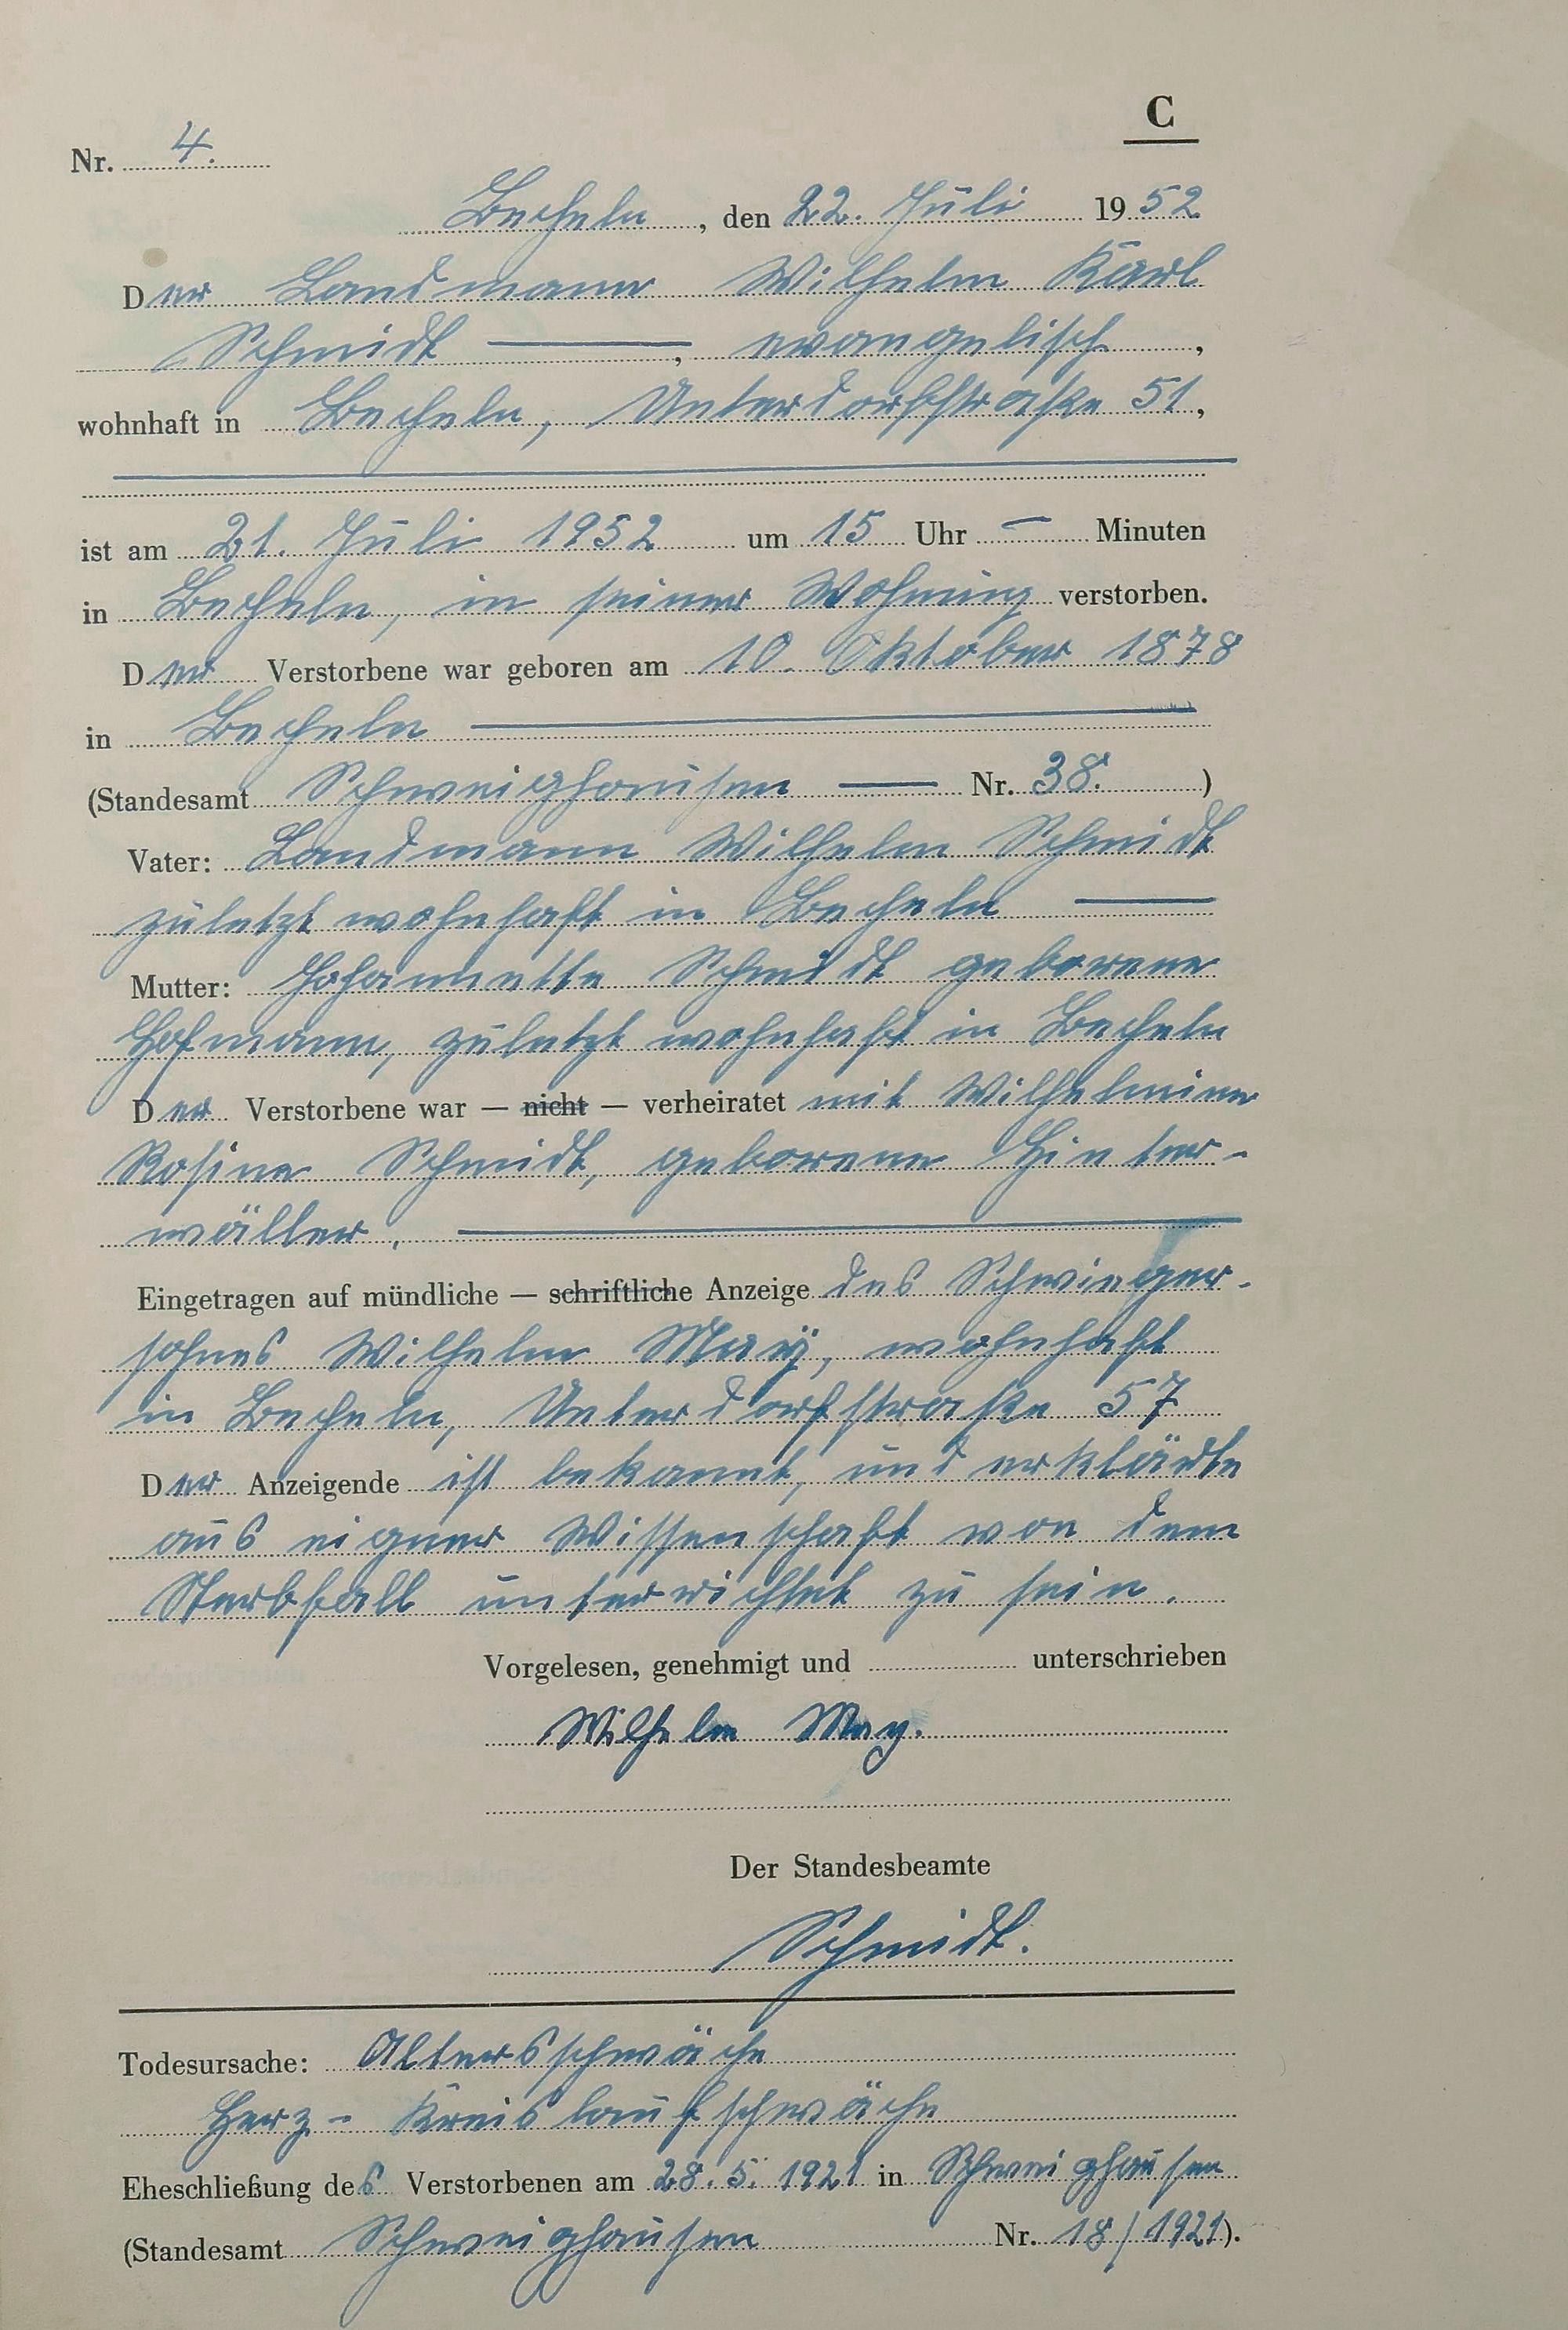 C
Nr. 4.
Becheln, den 22. Juli 1952
Der Landmann Wilhelm Karl
Schmidt ———, evangelisch,
wohnhaft in Becheln, Unterdorfstraße 51,
ist am 21. Juli 1952 um 15 Uhr — Minuten
in Becheln, in seiner Wohnung verstorben.
Der Verstorbene war geboren am 10. Oktober 1878
in Becheln ———
(Standesamt Schweighausen — Nr. 38.)
Vater: Landmann Wilhelm Schmidt
zuletzt wohnhaft in Becheln ———
Mutter: Johannette Schmidt geborene
Hofmann, zuletzt wohnhaft in Becheln
Der Verstorbene war — nicht — verheiratet mit Wilhelmine
Rosine Schmidt, geborene Hinter-
wäller. ———
Eingetragen auf mündliche — schriftliche Anzeige des Schwieger-
sohnes Wilhelm Maÿ, wohnhaft
in Becheln, Unterdorfstraße 57
Der Anzeigende ist bekannt, und erklärte
aus eigner Wissenschaft von dem
Sterbfall unterrichtet zu sein.
Vorgelesen, genehmigt und unterschrieben
Wilhelm May.
Der Standesbeamte
Schmidt.
Todesursache: Altersschwäche
Herz- Kreislaufschwäche
Eheschließung des Verstorbenen am 28. 5. 1921 in Schweighausen
(Standesamt Schweighausen Nr. 18/1921).